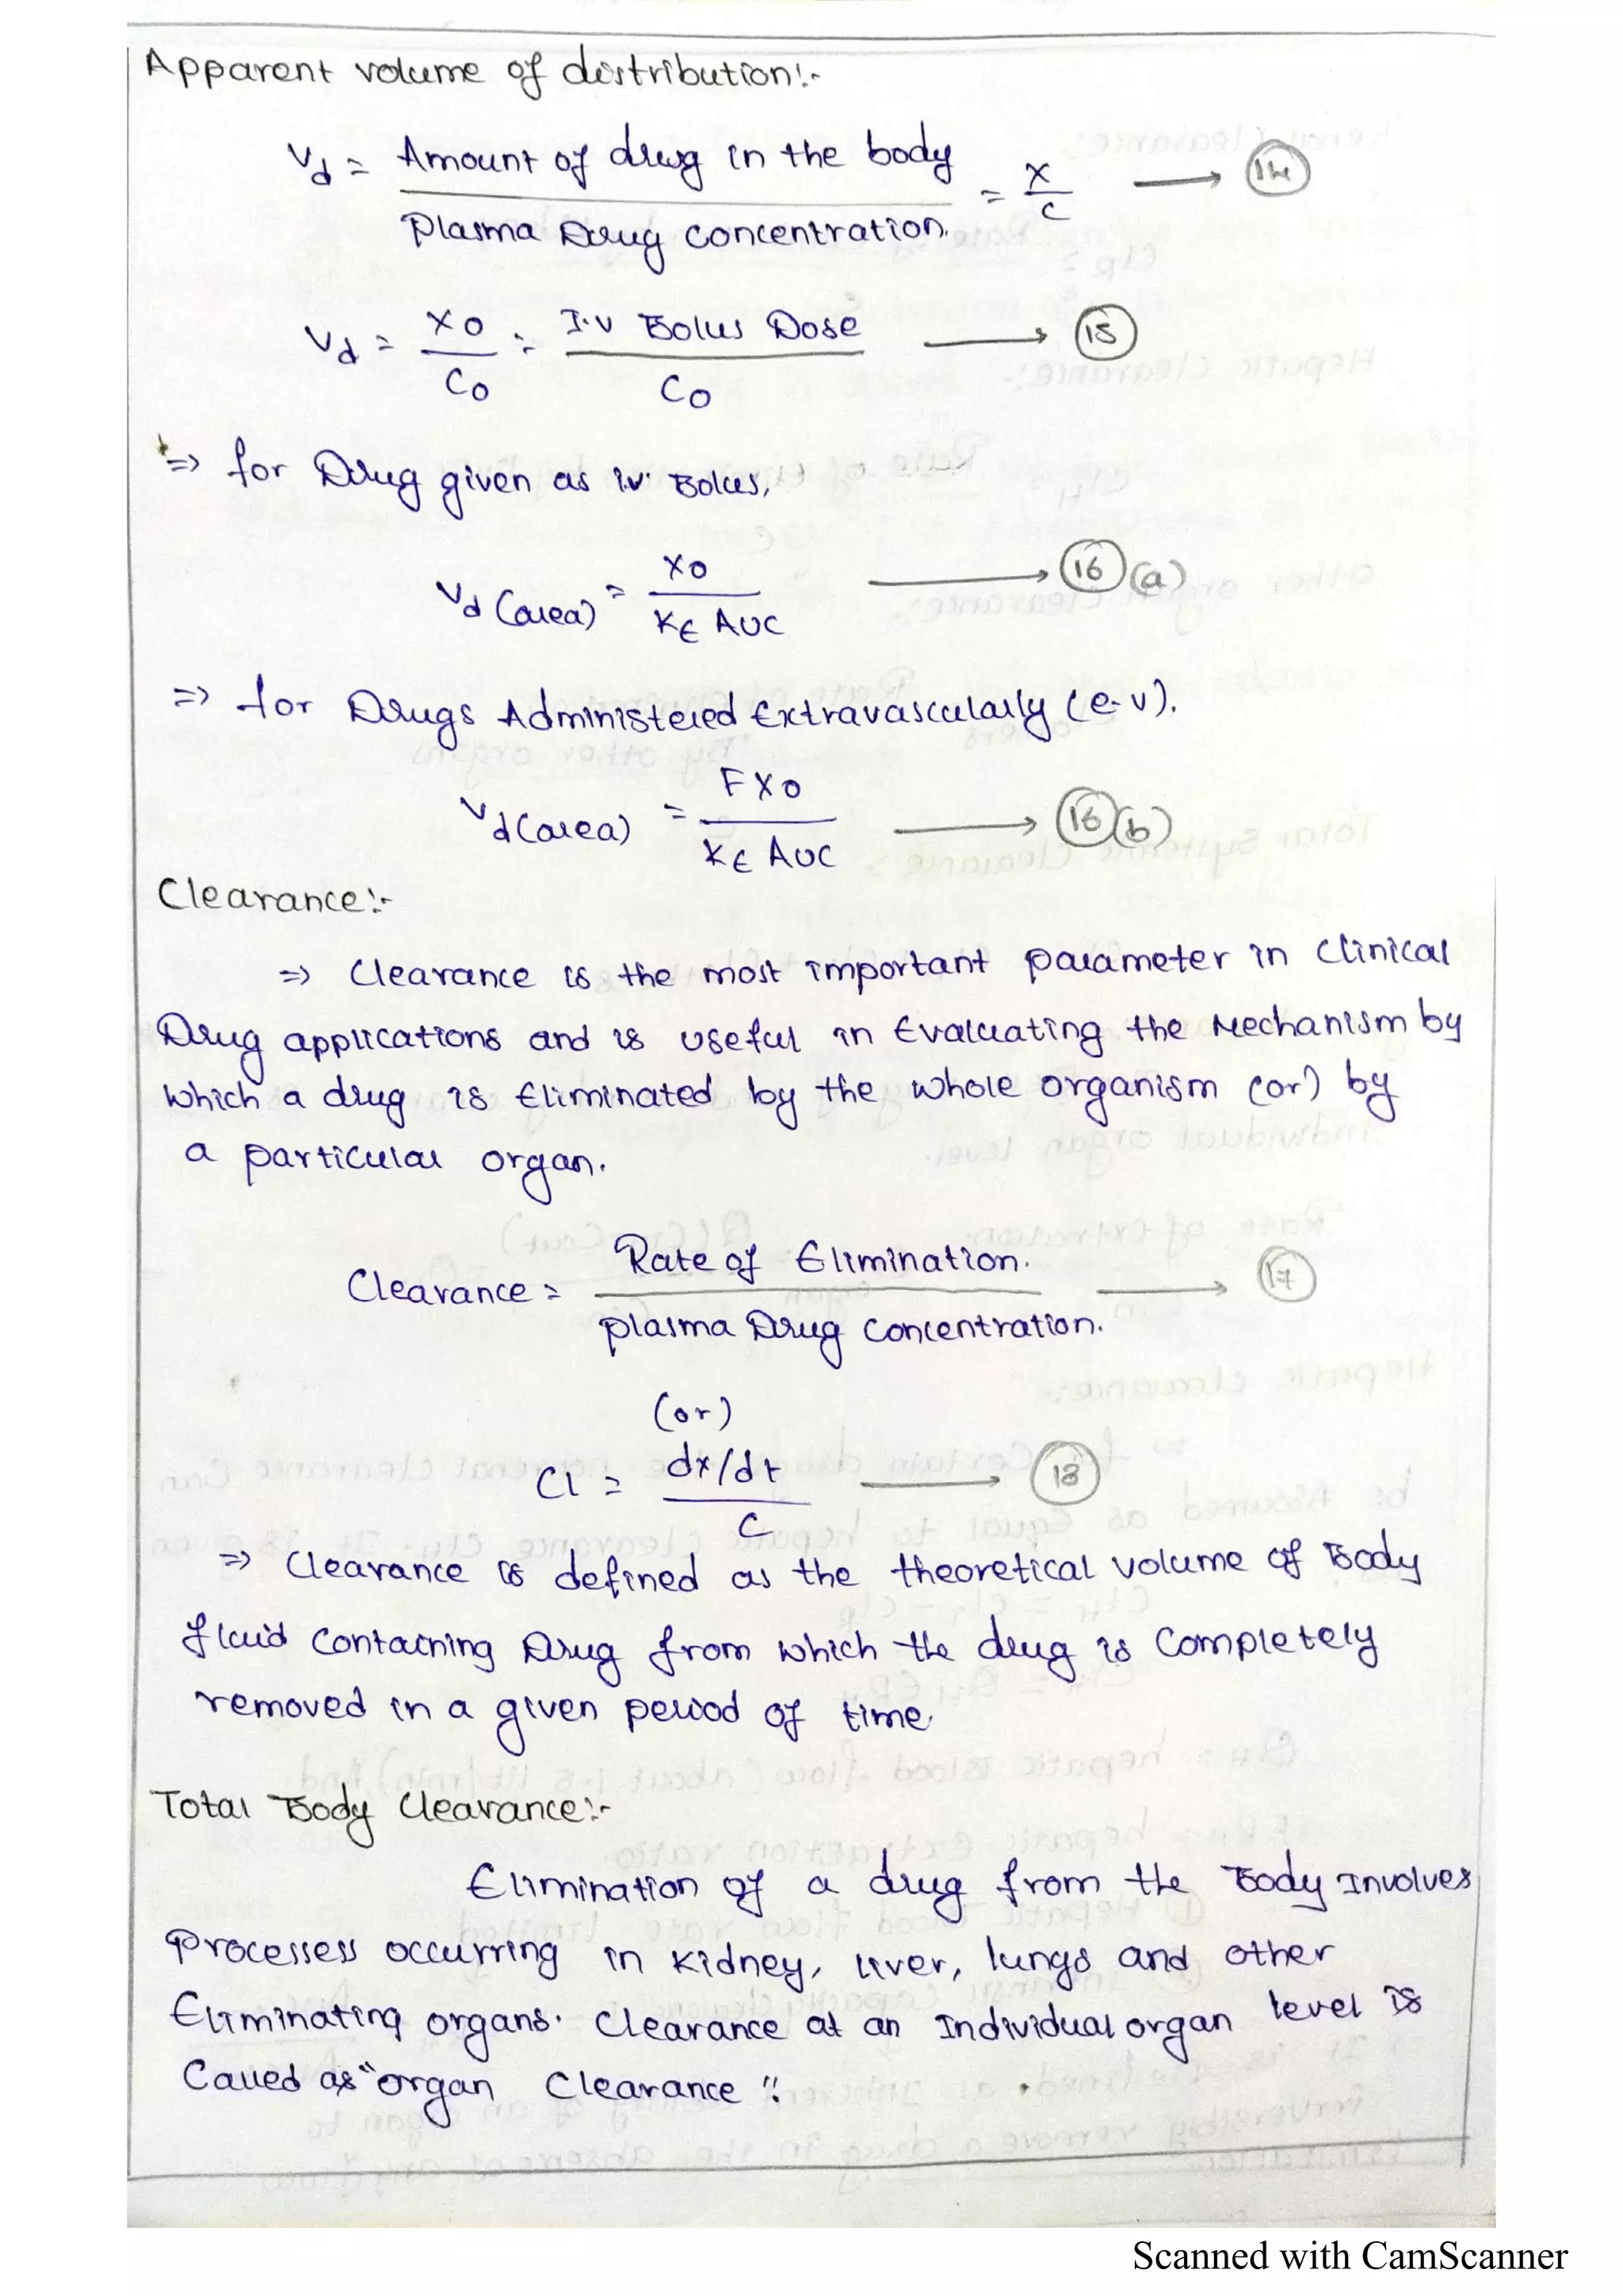 Apparent volume of distribution:-
Vd = Amount of drug in the body / Plasma Drug concentration. = X / C → 14
Vd = X0 / C0 = I.V Bolus Dose / C0 → 15
=> for Drug given as i.v. Bolus,
Vd (area) = X0 / KE AUC → 16 (a)
=> for Drugs Administered Extravascularly (e.v).
Vd(area) = F X0 / KE AUC → 16 (b)
Clearance:-
=> Clearance is the most important parameter in clinical
Drug applications and is useful in Evaluating the Mechanism by
which a drug is Eliminated by the whole organism (or) by
a particular organ.
Clearance = Rate of Elimination. / plasma Drug concentration. → 17
(or)
Cl = dx/dt / C → 18
=> Clearance is defined as the theoretical volume of Body
fluid containing Drug from which the drug is completely
removed in a given period of time.
Total Body Clearance:-
Elimination of a drug from the Body Involves
Processess occurring in kidney, liver, lungs and other
Eliminating organs. Clearance at an Individual organ level is
Called as "organ Clearance".
Scanned with CamScanner